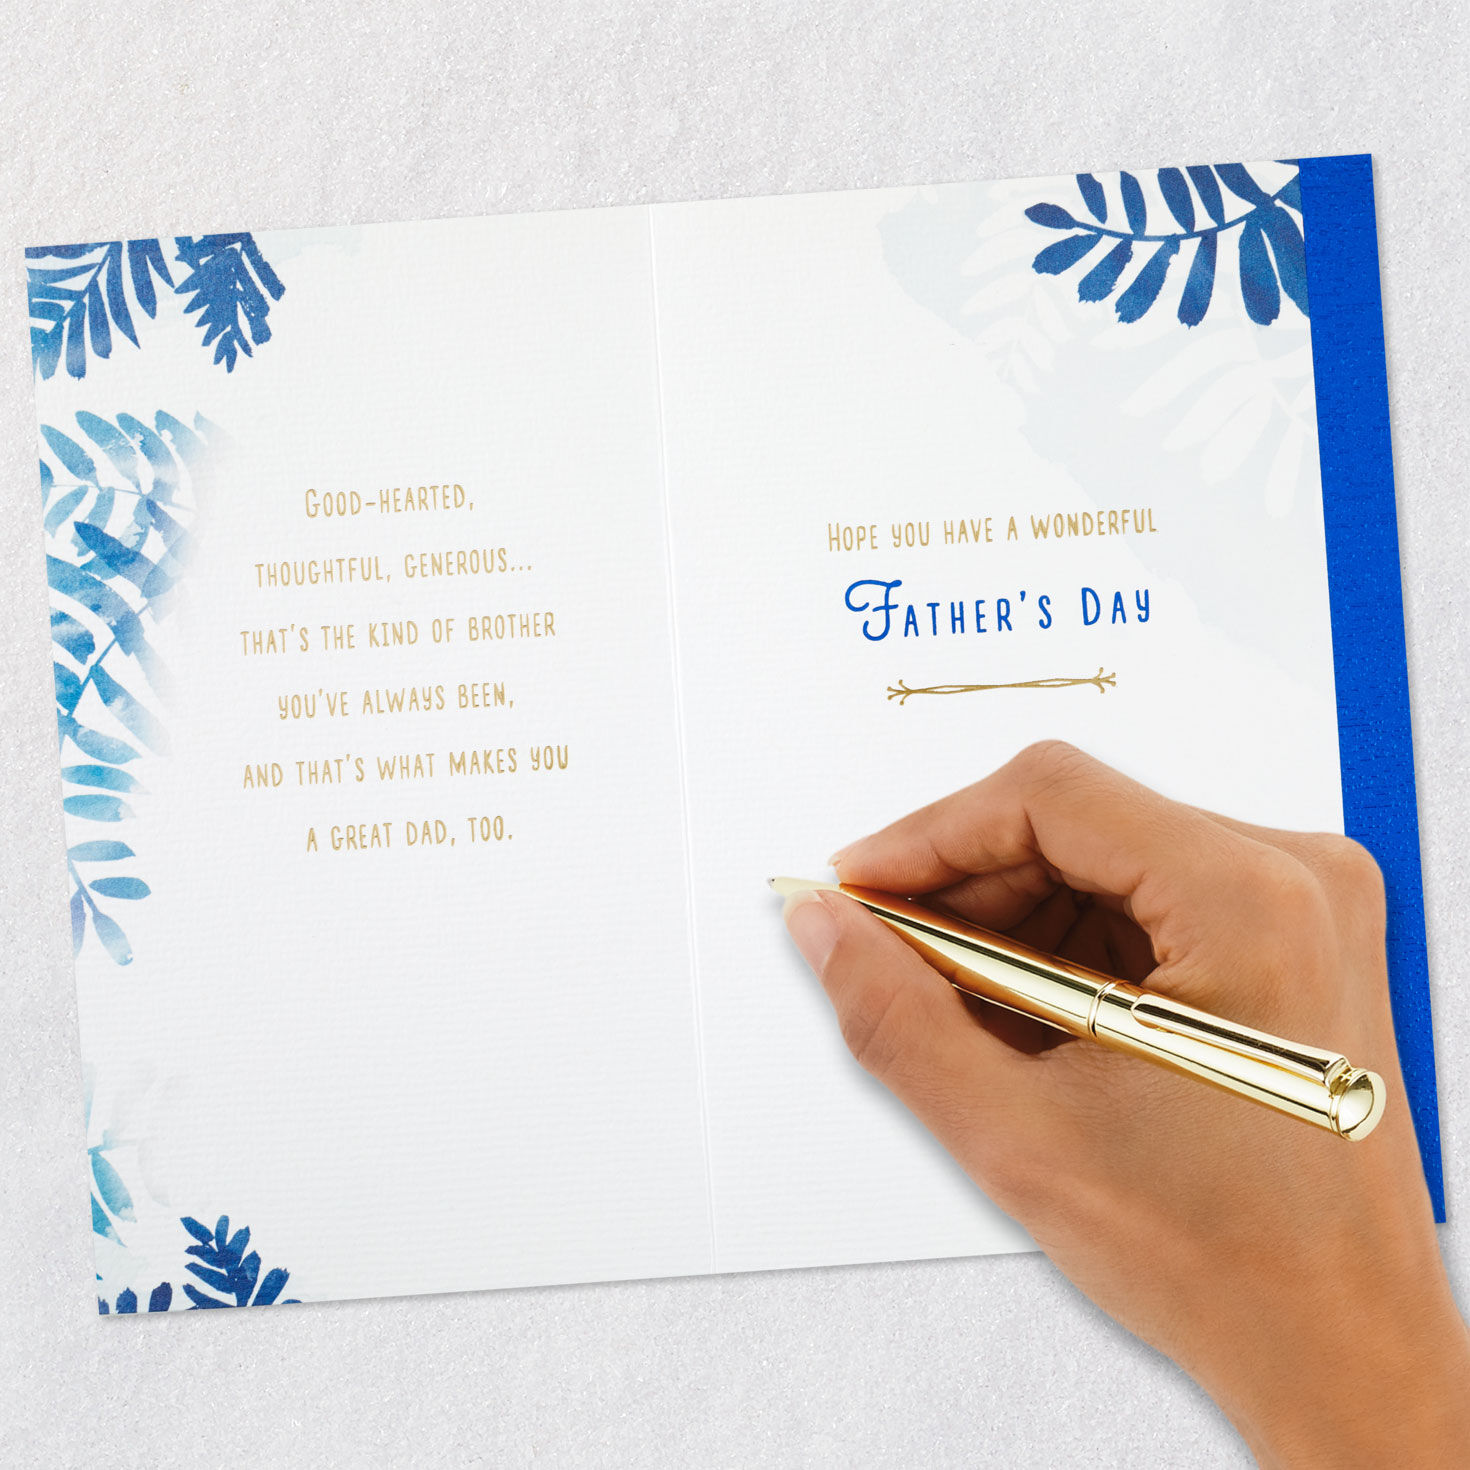 GOOD-HEARTED,
THOUGHTFUL, GENEROUS...
THAT'S THE KIND OF BROTHER
YOU'VE ALWAYS BEEN,
AND THAT'S WHAT MAKES YOU
A GREAT DAD, TOO.
HOPE YOU HAVE A WONDERFUL
FATHER'S DAY